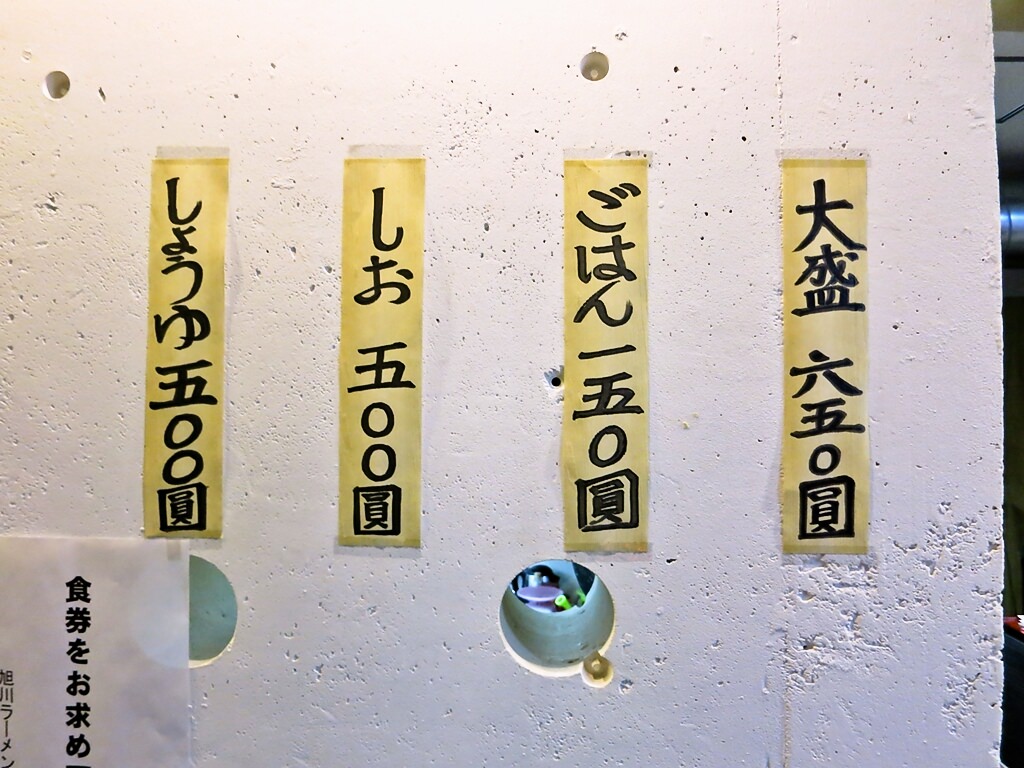 大盛 六五〇圓
ごはん 一五〇圓
しお 五〇〇圓
しょうゆ 五〇〇圓
食券をお求め
旭川ラーメン